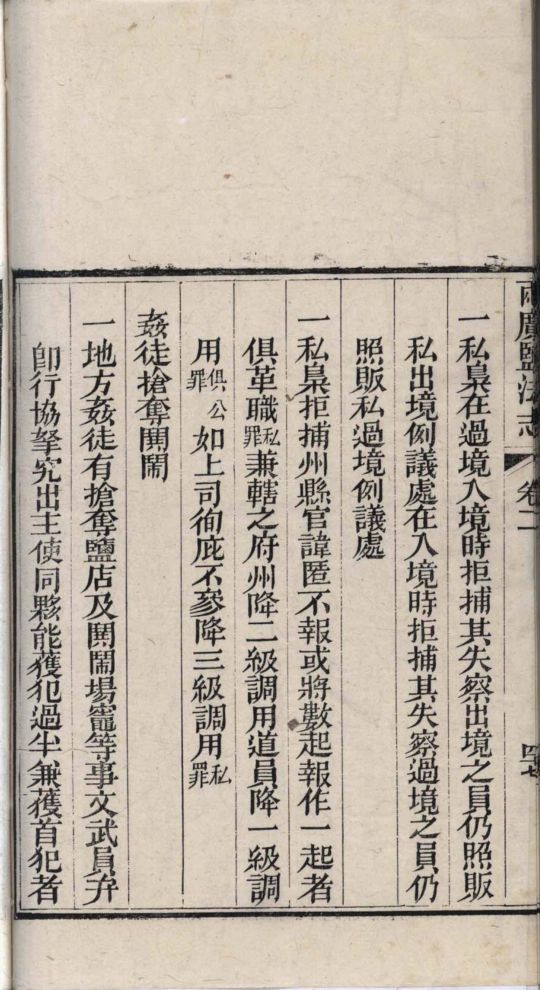 兩廣鹽法志 卷二 四七
一私梟在過境入境時拒捕其失察出境之員仍照販
私出境例議處在入境時拒捕其失察過境之員仍
照販私過境例議處
一私梟拒捕州縣官諱匿不報或將數起報作一起者
俱革職私罪兼轄之府州降二級調用道員降一級調
用俱公罪如上司徇庇不參降三級調用私罪
姦徒搶奪鬨鬧
一地方姦徒有搶奪鹽店及鬨鬧場竈等事文武員弁
卽行協拏究出主使同夥能獲犯過半兼獲首犯者